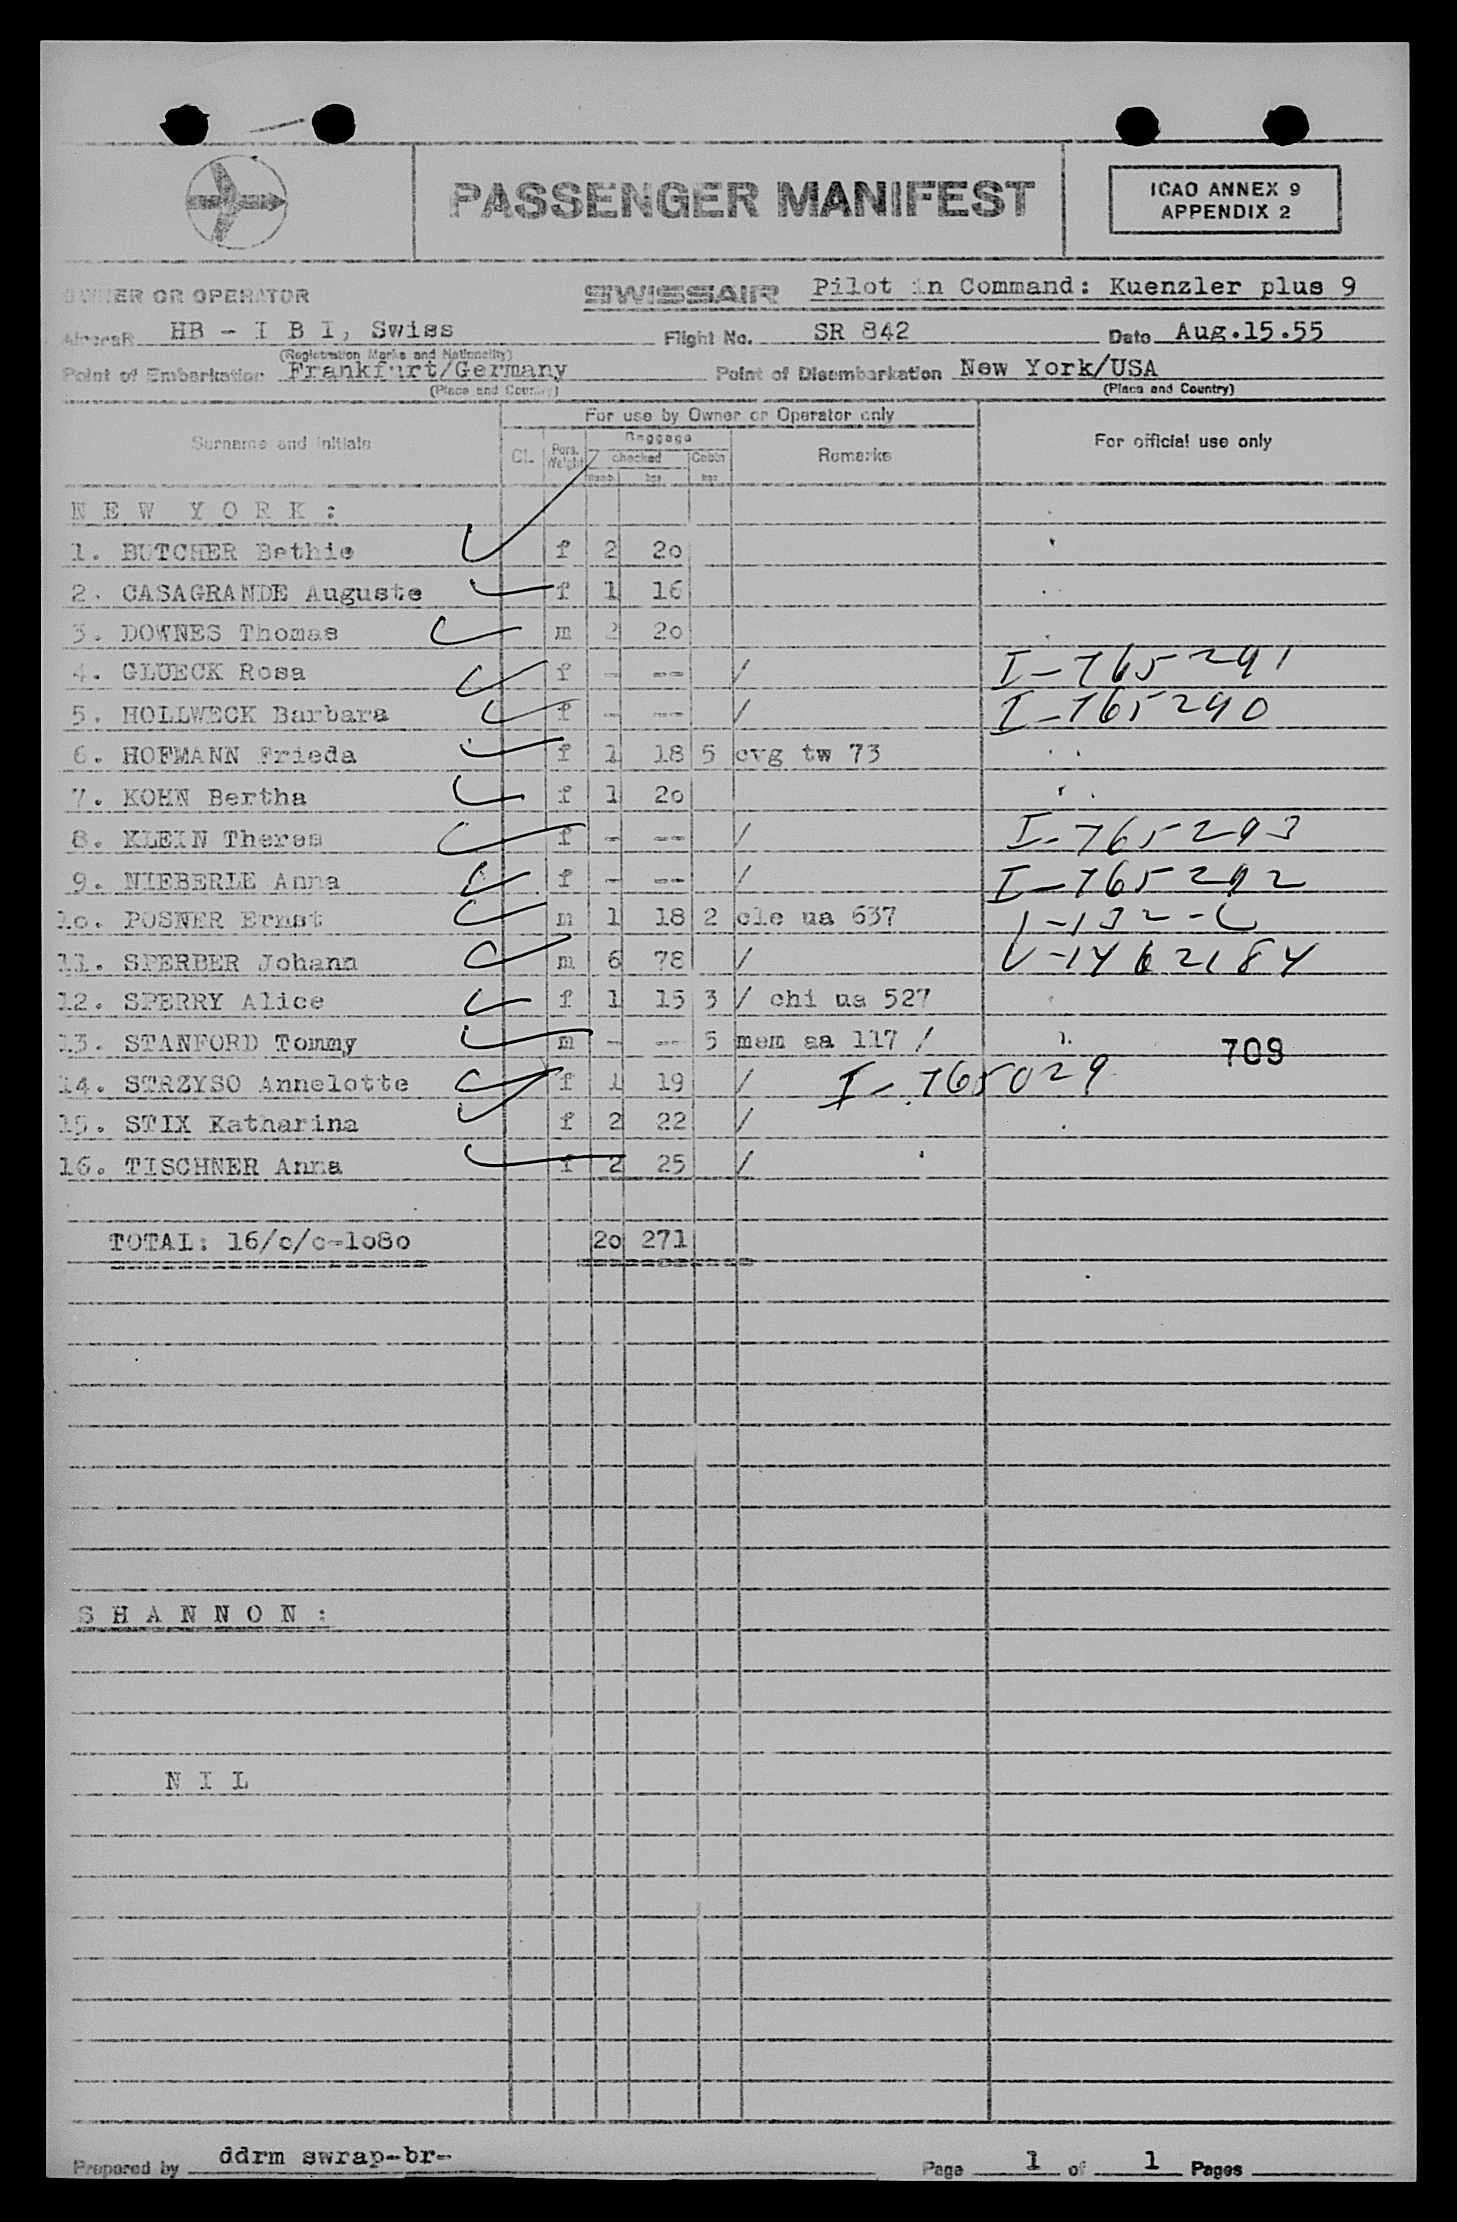 PASSENGER MANIFEST
ICAO ANNEX 9
APPENDIX 2
OWNER OR OPERATOR SWISSAIR Pilot in Command: Kuenzler plus 9
Aircraft HB - I B I, Swiss Flight No. SR 842 Date Aug.15.55
(Registration Marks and Nationality)
Point of Embarkation Frankfurt/Germany Point of Disembarkation New York/USA
(Place and Country) (Place and Country)
For use by Owner or Operator only
Surname and initials CL. Pers. Weight Baggage checked Cabin Remarks For official use only
Numb. kgs kgs
N E W Y O R K :
1. BUTCHER Bethie f 2 2o
2. CASAGRANDE Auguste f 1 16
3. DOWNES Thomas m 2 2o
4. GLUECK Rosa f - -- / I-765291
5. HOLLWECK Barbara f - -- / I-765290
6. HOFMANN Frieda f 1 18 5 cvg tw 73
7. KOHN Bertha f 1 2o
8. KLEIN Theres f - -- / I-765293
9. NIEBERLE Anna f - -- / I-765292
1o. POSNER Ernst m 1 18 2 cle ua 637
11. SPERBER Johann m 6 78 / V-1462184
12. SPERRY Alice f 1 15 3 / chi ua 527
13. STANFORD Tommy m - -- 5 mem aa 117 / 709
14. STRZYSO Annelotte f 1 19 / I-765029
15. STIX Katharina f 2 22 /
16. TISCHNER Anna f 2 25 /
TOTAL: 16/o/o-1o8o 2o 271
S H A N N O N :
N I L
Prepared by ddrm swrap-br- Page 1 of 1 Pages